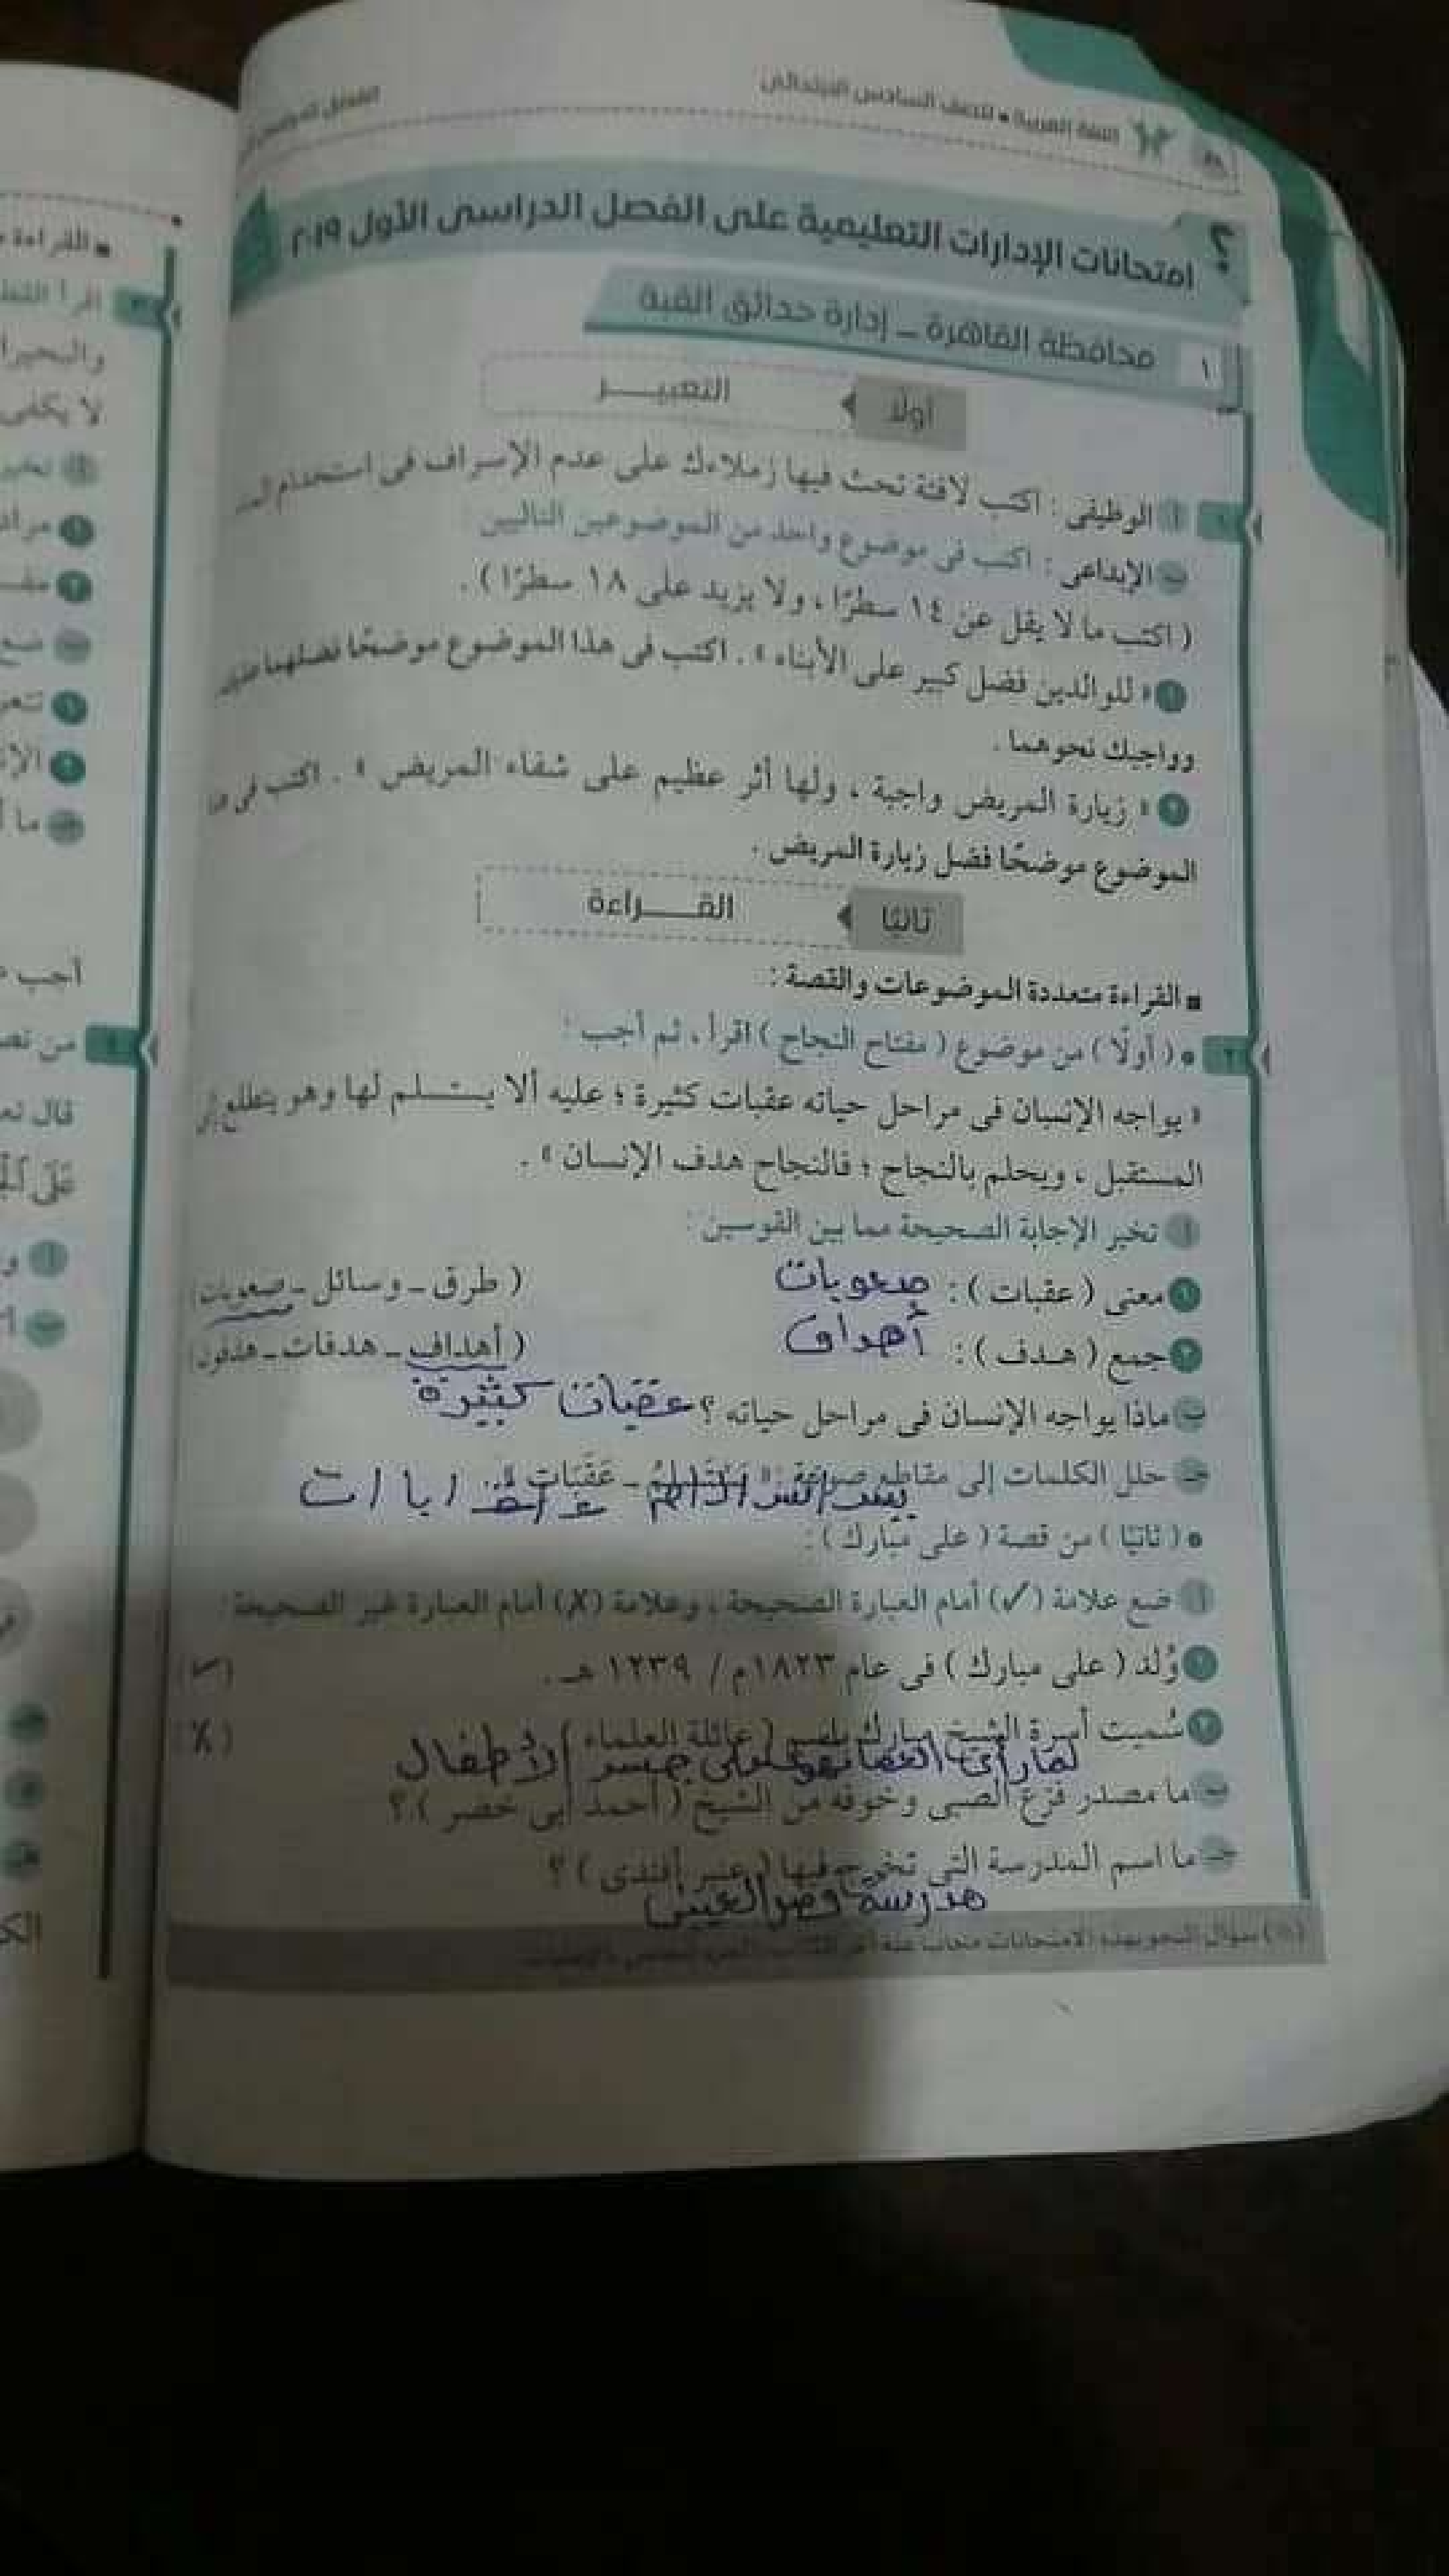 اللغة العربية • للصف السادس الابتدائى
امتحانات الإدارات التعليمية على الفصل الدراسى الأول ٢٠١٩
١ محافظة القاهرة – إدارة حدائق القبة
أولًا التعبيـــر
١ أ الوظيفى : اكتب لافتة تحث فيها زملاءك على عدم الإسراف فى استخدام
ب الإبداعى : اكتب فى موضوع واحد من الموضوعين التاليين
( اكتب ما لا يقل عن ١٤ سطرًا ، ولا يزيد على ١٨ سطرًا ) .
١ « للوالدين فضل كبير على الأبناء » . اكتب فى هذا الموضوع موضحًا فضلهما
وواجبك نحوهما .
٢ « زيارة المريض واجبة ، ولها أثر عظيم على شفاء المريض » . اكتب فى
الموضوع موضحًا فضل زيارة المريض .
ثانيًا القـــراءة
■ القراءة متعددة الموضوعات والقصة :
٢ • ( أولًا ) من موضوع ( مفتاح النجاح ) اقرأ ، ثم أجب :
« يواجه الإنسان فى مراحل حياته عقبات كثيرة ؛ عليه ألا يستسلم لها وهو يتطلع إلى
المستقبل ، ويحلم بالنجاح ؛ فالنجاح هدف الإنسان » .
أ تخير الإجابة الصحيحة مما بين القوسين :
١ معنى ( عقبات ) : صعوبات ( طرق – وسائل – صعوبات )
٢ جمع ( هدف ) : أهداف ( أهداف – هدفات – هدفون )
ب ماذا يواجه الإنسان فى مراحل حياته ؟ عقبات كثيرة
جـ حلل الكلمات إلى مقاطع صوتية : « يستسلم – عَقَبَات »
• ( ثانيًا ) من قصة ( على مبارك ) :
أ ضع علامة (✓) أمام العبارة الصحيحة ، وعلامة (X) أمام العبارة غير الصحيحة :
١ وُلد ( على مبارك ) فى عام ١٨٢٣م / ١٢٣٩ هـ . (✓)
٢ سُميت أسرة الشيخ مبارك باسم ( عائلة العلماء ) (X)
ب ما مصدر فزع الصبى وخوفه من الشيخ ( أحمد أبى خضر ) ؟
جـ ما اسم المدرسة التى تخرج فيها ( عنبر أفندى ) ؟
مدرسة قصر العينى
القراءة
والبحيرا
لا يكفى
أجب